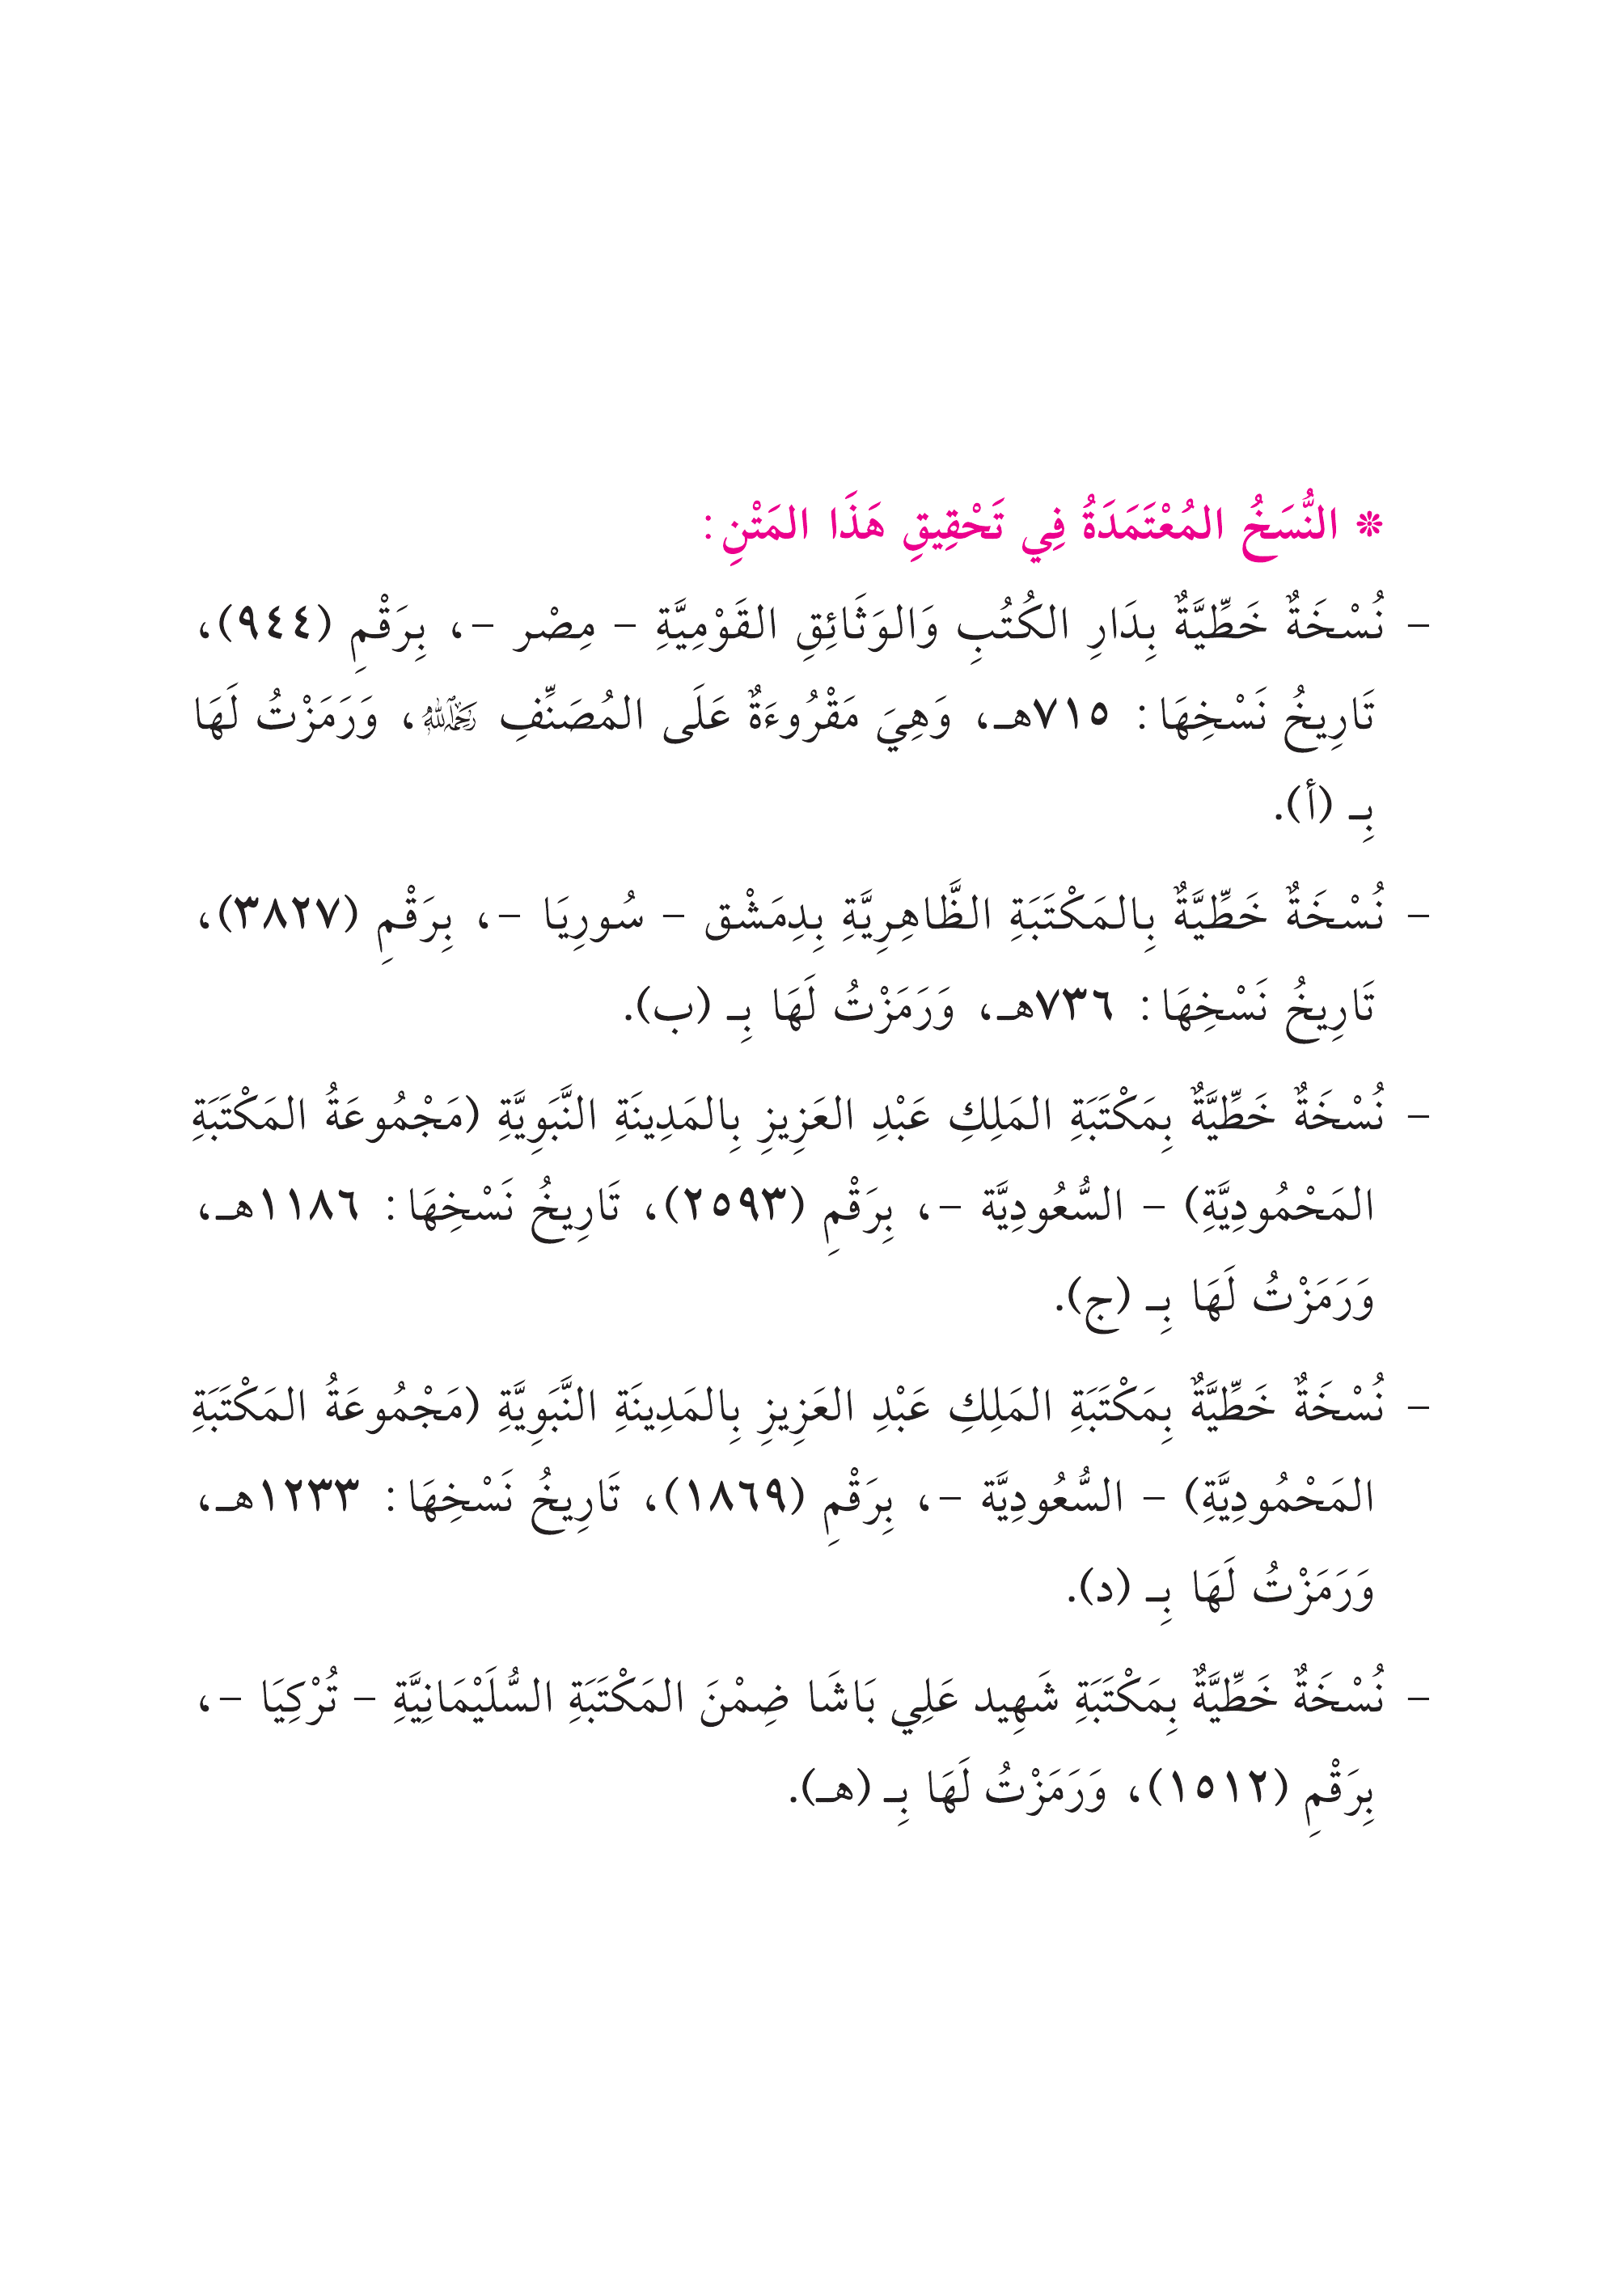 * النُّسَخُ المُعْتَمَدَةُ فِي تَحْقِيقِ هَذَا المَتْنِ:
- نُسْخَةٌ خَطِّيَّةٌ بِدَارِ الكُتُبِ وَالوَثَائِقِ القَوْمِيَّةِ - مِصْر -، بِرَقْمِ (٩٤٤)،
تَارِيخُ نَسْخِهَا: ٧١٥هـ، وَهِيَ مَقْرُوءَةٌ عَلَى المُصَنِّفِ رَحِمَهُ اللَّهُ، وَرَمَزْتُ لَهَا
بِـ (أ).
- نُسْخَةٌ خَطِّيَّةٌ بِالمَكْتَبَةِ الظَّاهِرِيَّةِ بِدِمَشْق - سُورِيَا -، بِرَقْمِ (٣٨٢٧)،
تَارِيخُ نَسْخِهَا: ٧٣٦هـ، وَرَمَزْتُ لَهَا بِـ (ب).
- نُسْخَةٌ خَطِّيَّةٌ بِمَكْتَبَةِ المَلِكِ عَبْدِ العَزِيزِ بِالمَدِينَةِ النَّبَوِيَّةِ (مَجْمُوعَةُ المَكْتَبَةِ
المَحْمُودِيَّةِ) - السُّعُودِيَّة -، بِرَقْمِ (٢٥٩٣)، تَارِيخُ نَسْخِهَا: ١١٨٦هـ،
وَرَمَزْتُ لَهَا بِـ (ج).
- نُسْخَةٌ خَطِّيَّةٌ بِمَكْتَبَةِ المَلِكِ عَبْدِ العَزِيزِ بِالمَدِينَةِ النَّبَوِيَّةِ (مَجْمُوعَةُ المَكْتَبَةِ
المَحْمُودِيَّةِ) - السُّعُودِيَّة -، بِرَقْمِ (١٨٦٩)، تَارِيخُ نَسْخِهَا: ١٢٣٣هـ،
وَرَمَزْتُ لَهَا بِـ (د).
- نُسْخَةٌ خَطِّيَّةٌ بِمَكْتَبَةِ شَهِيد عَلِي بَاشَا ضِمْنَ المَكْتَبَةِ السُّلَيْمَانِيَّةِ - تُرْكِيَا -،
بِرَقْمِ (١٥١٢)، وَرَمَزْتُ لَهَا بِـ (هـ).